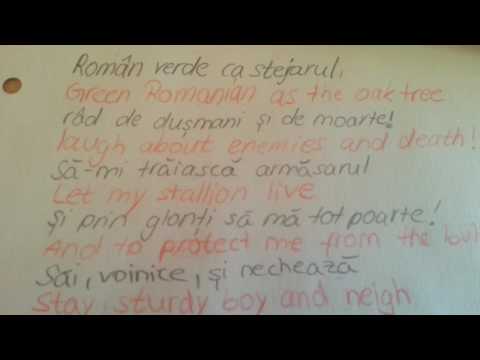 Român verde ca stejarul,
Green Romanian as the oak tree
râd de dușmani și de moarte!
laugh about enemies and death!
Să-mi trăiască armăsarul
Let my stallion live
Și prin glonți să mă tot poarte!
And to protect me from the bull
Săi, voinice, și nechează
Stay, sturdy boy and neigh